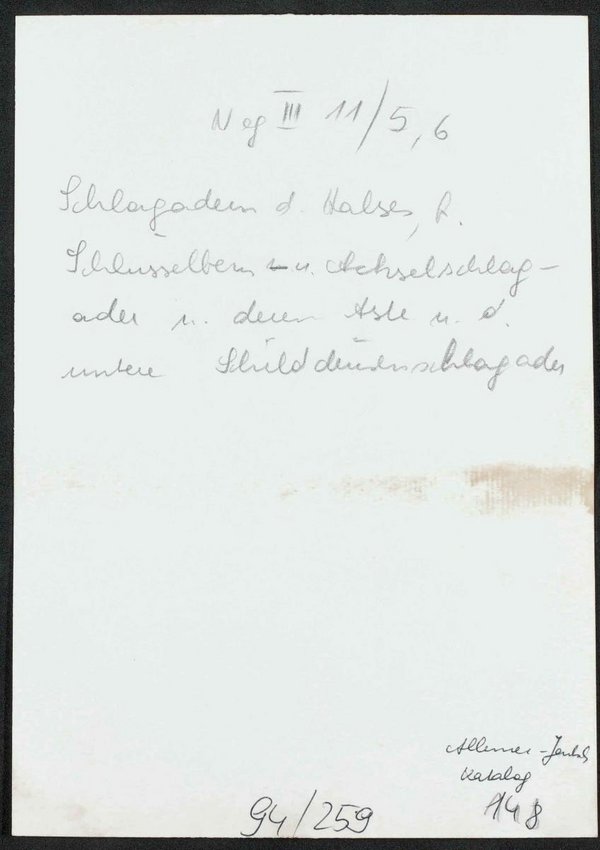 Neg III 11/5,6
Schlagadern d. Halses, R.
Schlüsselbein - u. Achselschlag-
ader u. deren Äste u. d.
untere Schilddrüsenschlagader
Allmer-Jantsch
Katalog
148
94/259